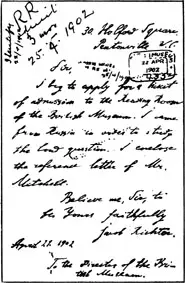 R.R.
3 mos
25.4.1902
30. Holford Square,
Pentonville, W.C.
Sir,
MUSEUM
22 APR
1902
I beg to apply for a ticket
of admission to the Reading Room
of the British Museum. I came
from Russia in order to study
the land question. I enclose
the reference letter of Mr.
Mitchell.
Believe me, Sir, to
be Yours faithfully
Jacob Richter.
April 21. 1902
To the Director of the Bri-
tish Museum.